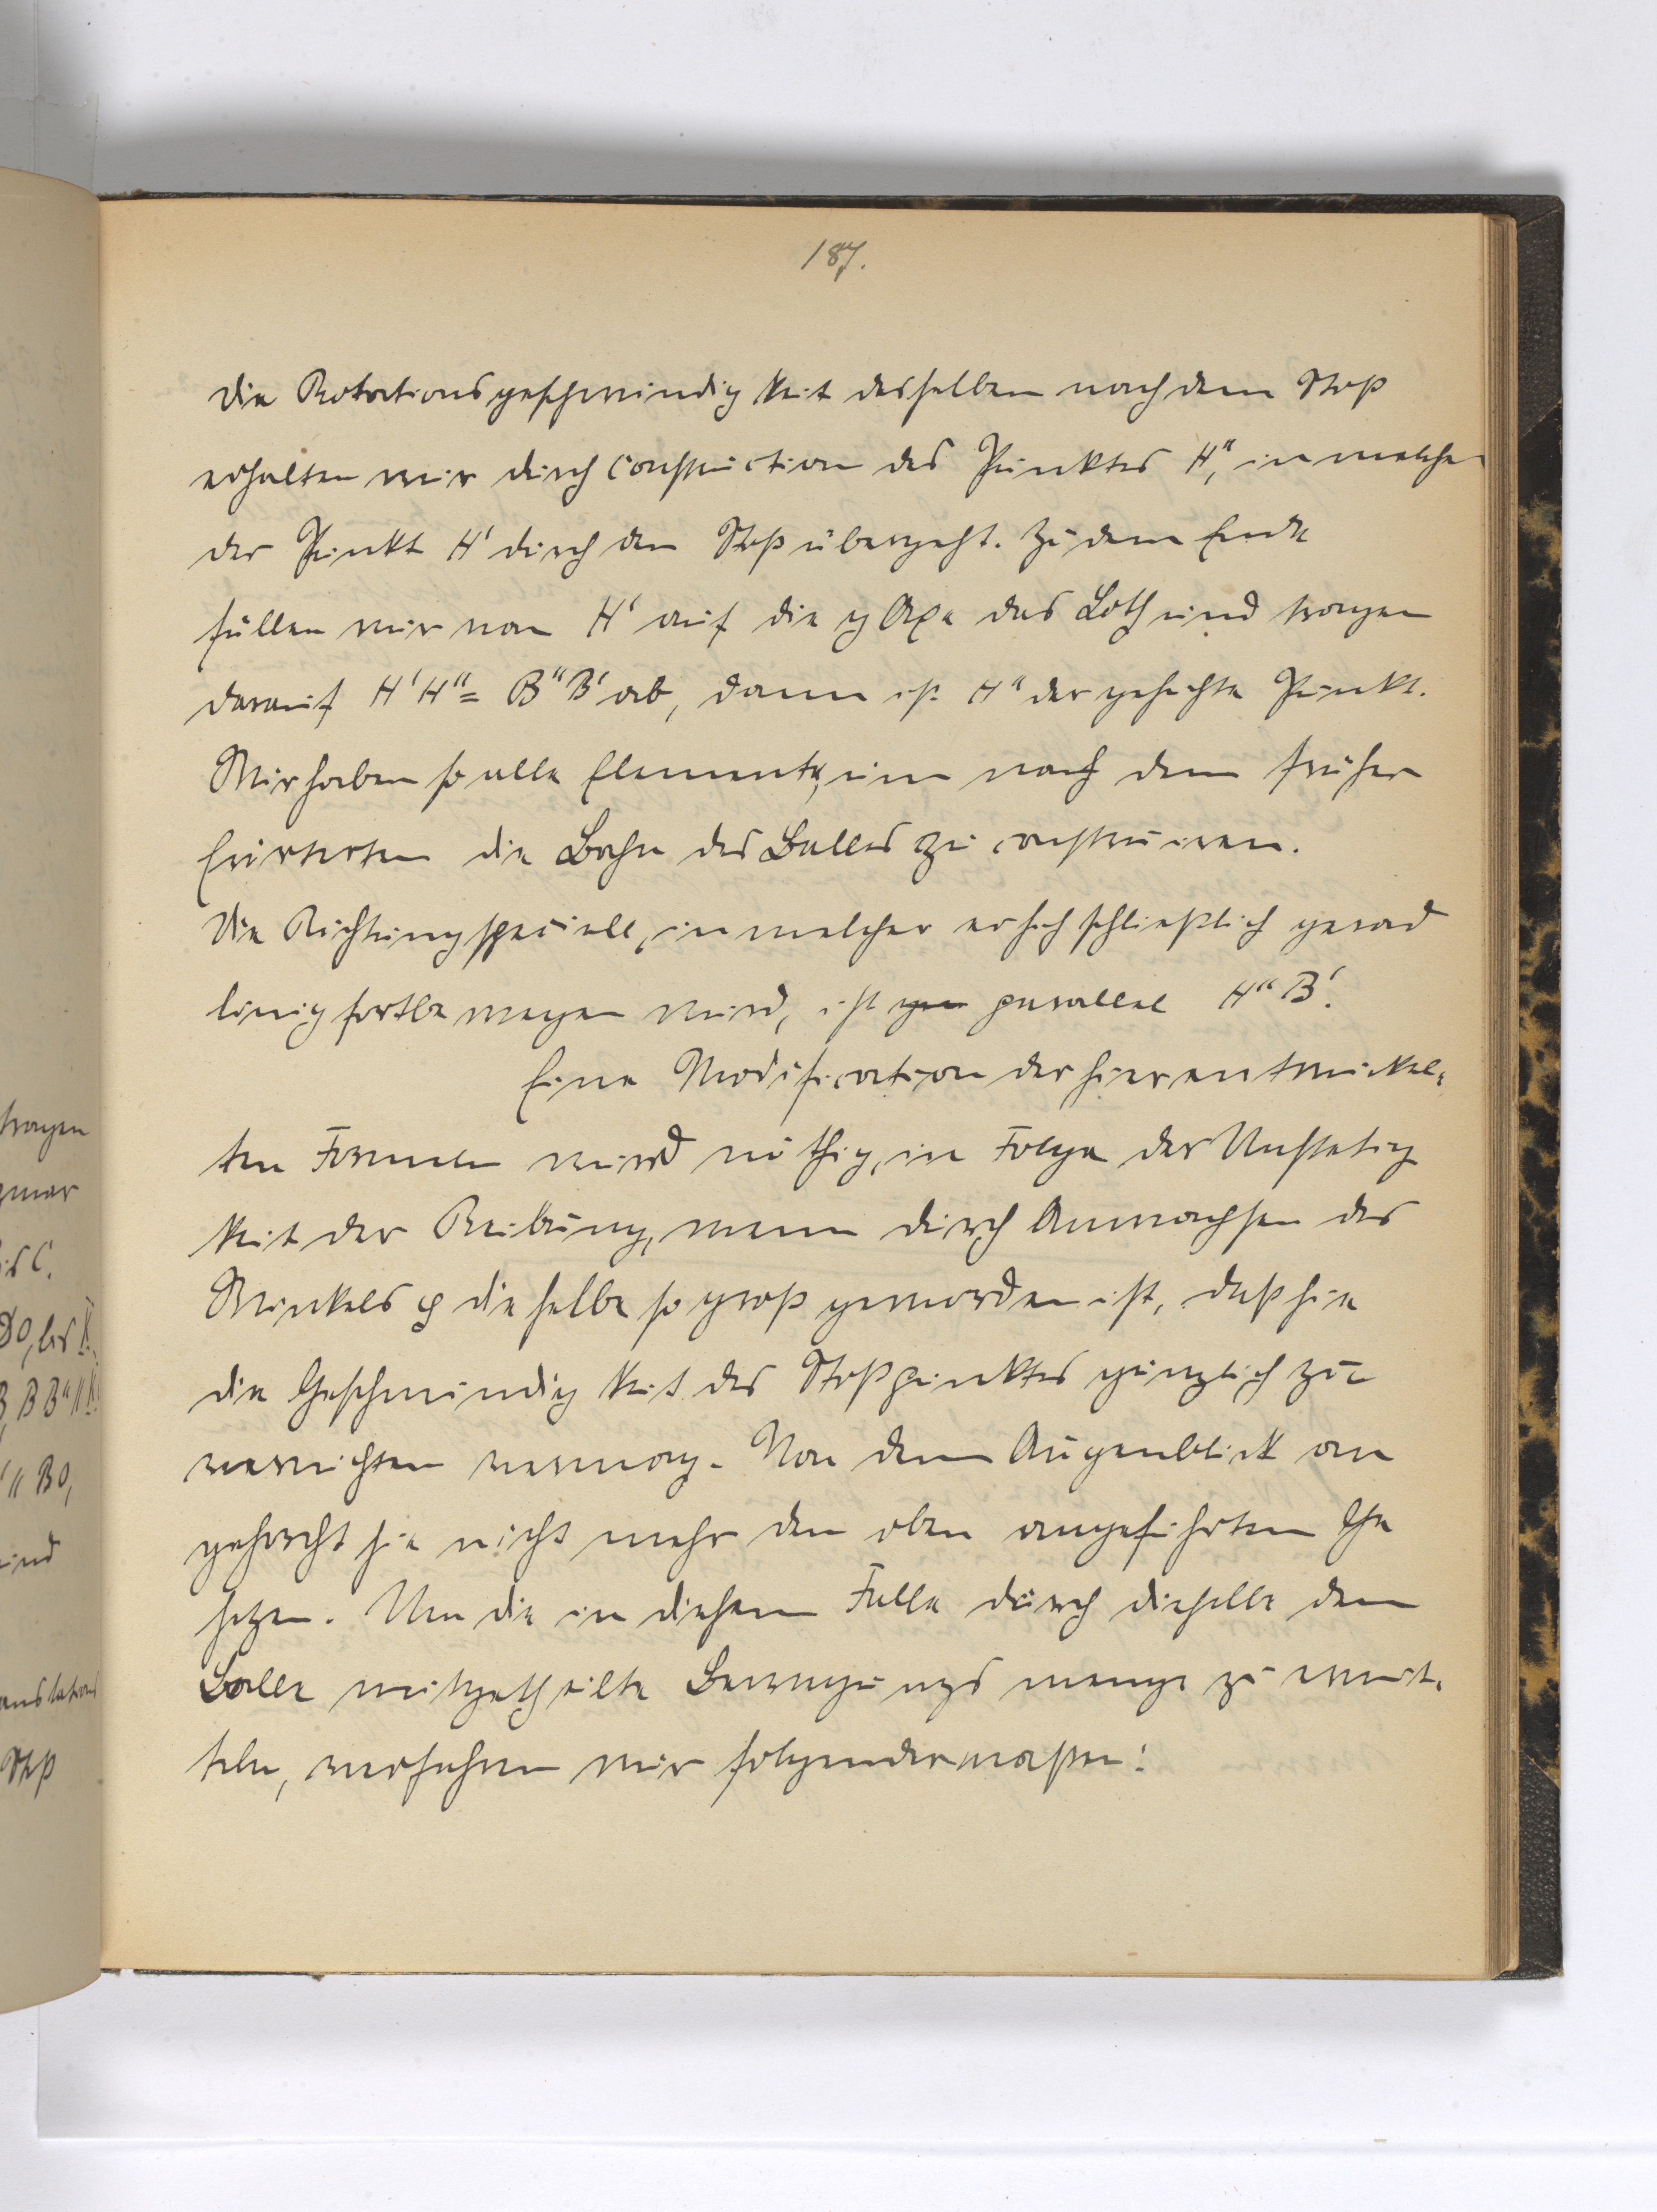 187.
Die Rotationsgeschwindigkeit desselben nach dem Stoß
erhalten wir durch Construction des Punktes H", in welchen
der Punkt H' durch den Stoß übergeht. Zu dem Ende
fällen wir von H' auf die y Axe das Loth und tragen
darauf H'H" = B"B' ab, dann ist H" der gesuchte Punkt.
Wir haben so alle Elemente, um nach dem früher
Erörterten die Bahn des Balles zu construiren.
Die Richtung speciell, in welcher er sich schließlich gerad
linig fortbewegen wird, ist parallel H"B'.
Eine Modification der hier entwickel-
ten Formeln wird nöthig, in Folge der Unstetig
keit der Reibung, wenn durch Anwachsen des
Winkels φ dieselbe so groß geworden ist, daß sie
die Geschwindigkeit des Stoßpunktes gänzlich zu
vernichten vermag. Von dem Augenblick an
gehorcht sie nicht mehr den oben angeführten Ge
setzen. Um die in diesem Falle durch dieselbe dem
Balle mitgetheilte Bewegungsmenge zu ermit-
teln, verfahren wir folgendermaßen:
tragen
is C.
DO, bis
B, BB" ||
" BO,
und
anslations
Stoß